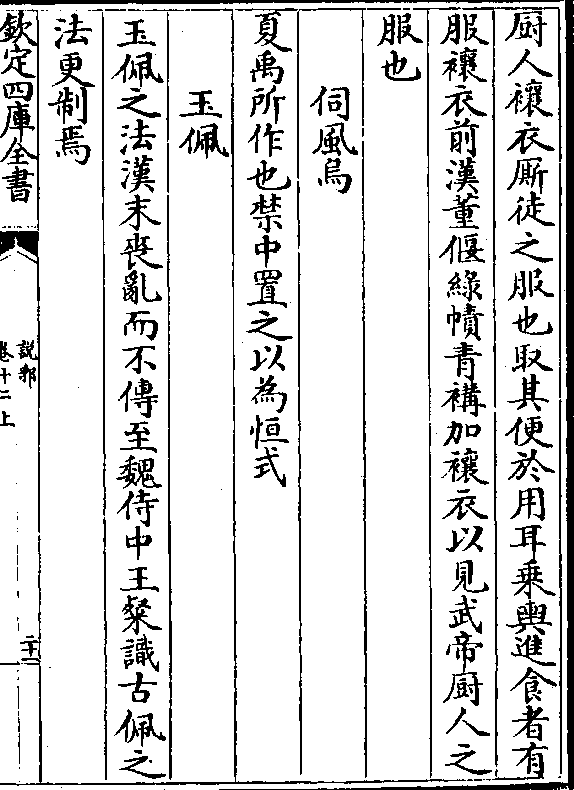 厨人襐衣厮徒之服也取其便於用耳乗輿進食者有
服襐衣前漢董偃緑幘青褠加襐衣以見武帝厨人之
服也
伺風烏
夏禹所作也禁中置之以為恒式
玉佩
玉佩之法漢末喪亂而不傳至魏侍中王粲識古佩之
法更制焉
欽定四庫全書
說郛
卷十二上